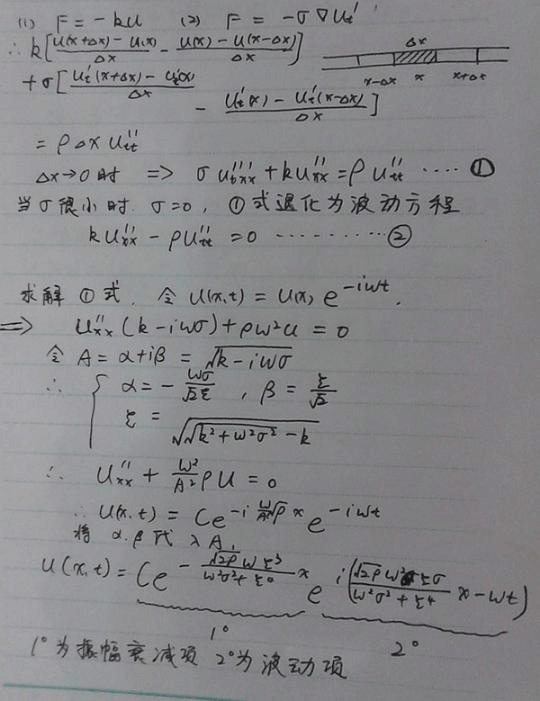 (1) F = -ku (2) F = -σ∇u_t'
∴ k[(u(x+Δx) - u(x))/Δx - (u(x) - u(x-Δx))/Δx]
Δx
x-Δx x x+Δx
+ σ[(u_t'(x+Δx) - u_t'(x))/Δx
- (u_t'(x) - u_t'(x-Δx))/Δx]
= ρ Δx u_tt''
Δx→0时 => σ u_txx''' + k u_xx'' = ρ u_tt'' ···· ①
当σ很小时. σ=0, ①式退化为波动方程
k u_xx'' - ρ u_tt'' = 0 ·········· ②
求解①式. 令 u(x,t) = u(x) e^{-iωt}.
=> u_xx''(k - iωσ) + ρω²u = 0
令 A = α+iβ = √(k - iωσ)
∴ { α = -ωσ/(√2 ξ) , β = ξ/√2
ξ = √(√(k²+ω²σ²) - k)
∴ u_xx'' + (ω²/A²) ρu = 0
∴ u(x,t) = C e^{-i (ω/A)√ρ x} e^{-iωt}
将 α.β代入A,
u(x,t) = C e^{-(√(2ρ) ω ξ³)/(ω²σ²+ξ⁴) x} e^{i((√(2ρ) ω² ξσ)/(ω²σ²+ξ⁴) x-ωt)}
1° 2°
1°为振幅衰减项 2°为波动项